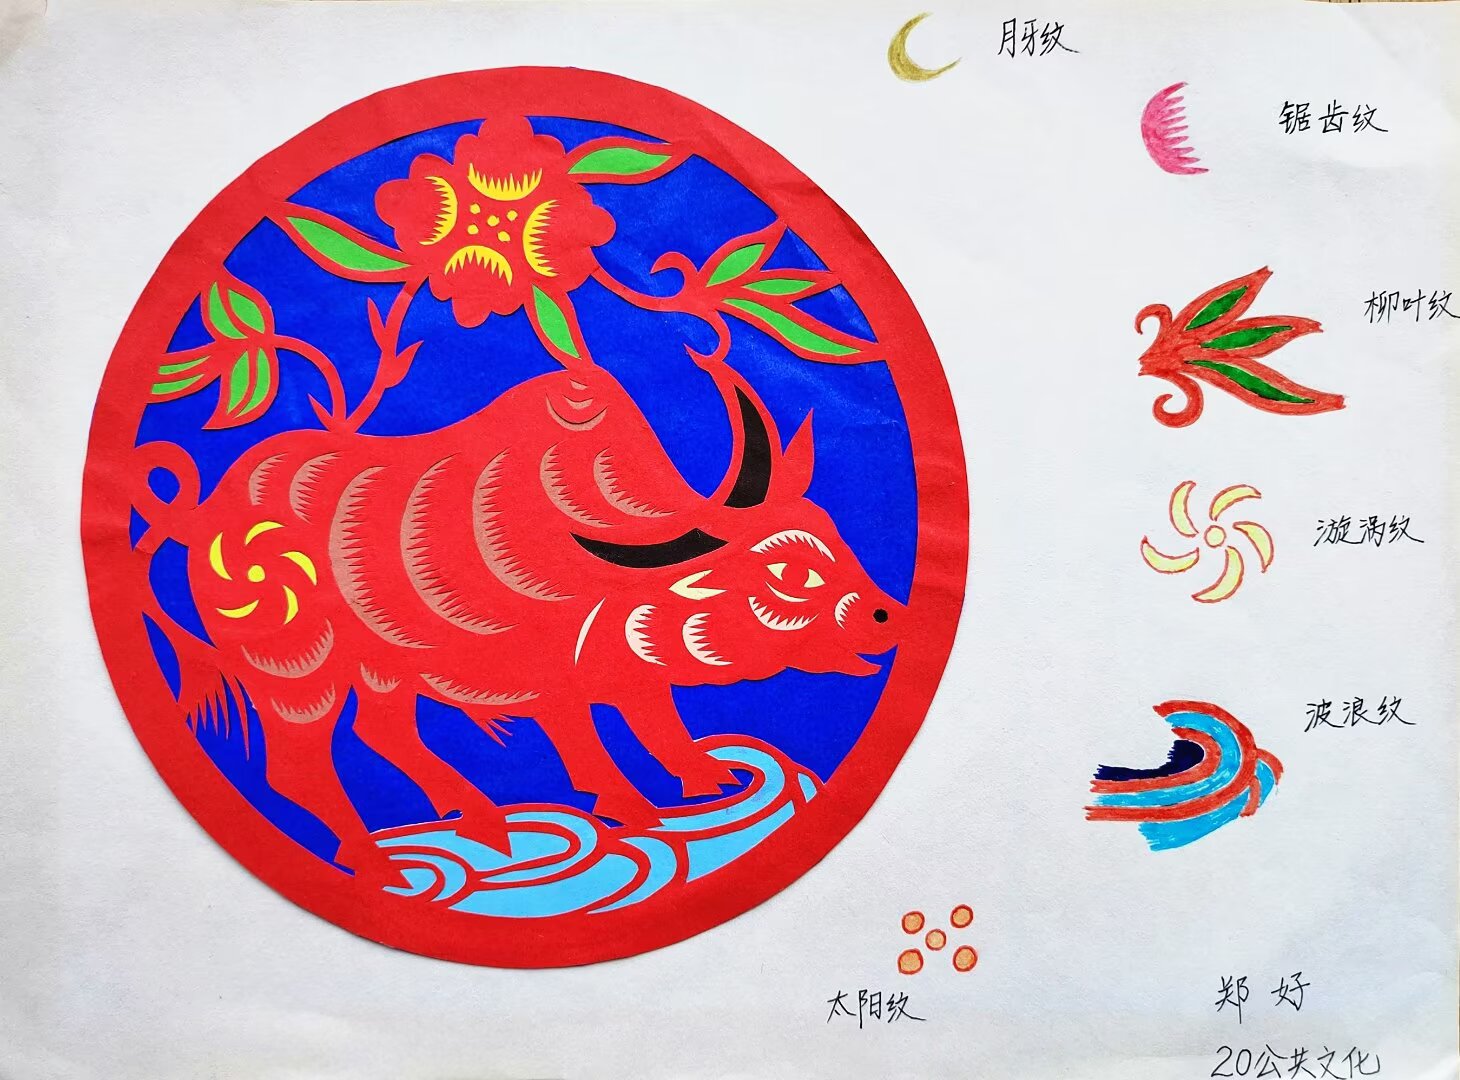 月牙纹
锯齿纹
柳叶纹
漩涡纹
波浪纹
太阳纹
郑好
20公共文化